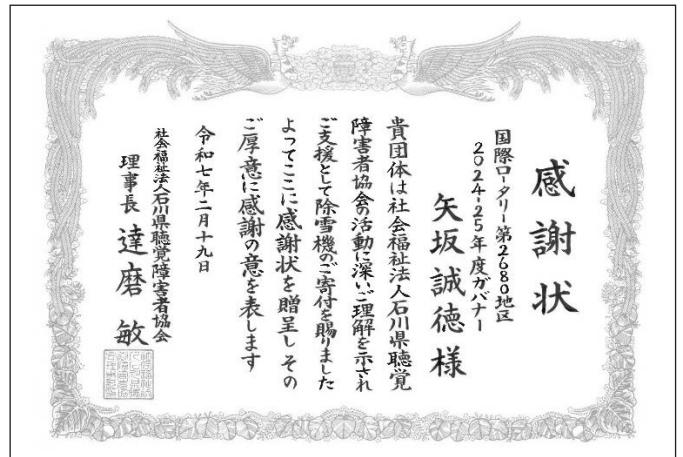 感謝状
国際ロータリー第2680地区
2024-25年度ガバナー
矢坂誠徳様
貴団体は社会福祉法人石川県聴覚
障害者協会の活動に深いご理解を示され
ご支援として除雪機のご寄付を賜りました
よってここに感謝状を贈呈しその
ご厚意に感謝の意を表します
令和七年二月十九日
社会福祉法人石川県聴覚障害者協会
理事長 達磨 敏